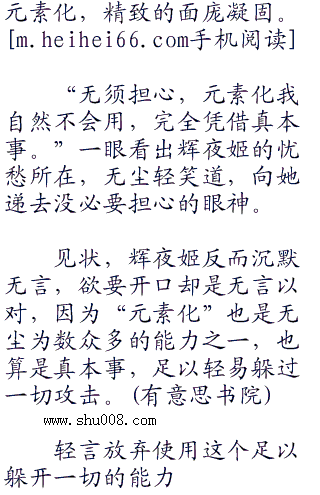 元素化，精致的面庞凝固。
[m.heihei66.com手机阅读]
“无须担心，元素化我
自然不会用，完全凭借真本
事。”一眼看出辉夜姬的忧
愁所在，无尘轻笑道，向她
递去没必要担心的眼神。
见状，辉夜姬反而沉默
无言，欲要开口却是无言以
对，因为“元素化”也是无
尘为数众多的能力之一，也
算是真本事，足以轻易躲过
一切攻击。(有意思书院)
www.shu008.com
轻言放弃使用这个足以
躲开一切的能力